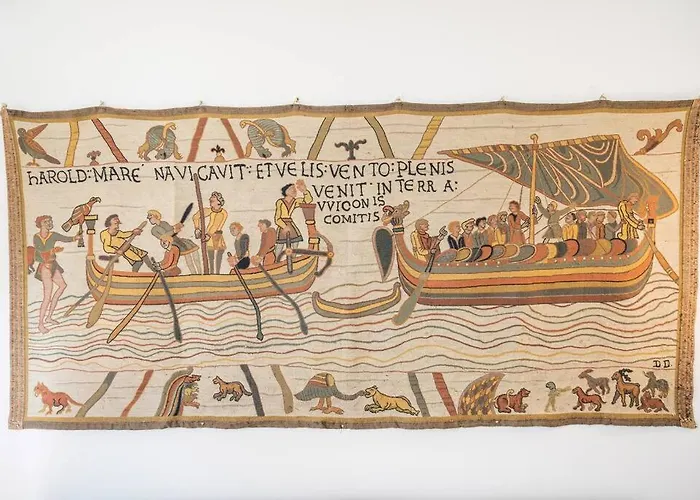 hAROLD : MARE NAVIGAVIT : ET VELIS : VENTO : PLENIS
VENIT : IN TERRA :
VVIDONIS
COMITIS
D D.